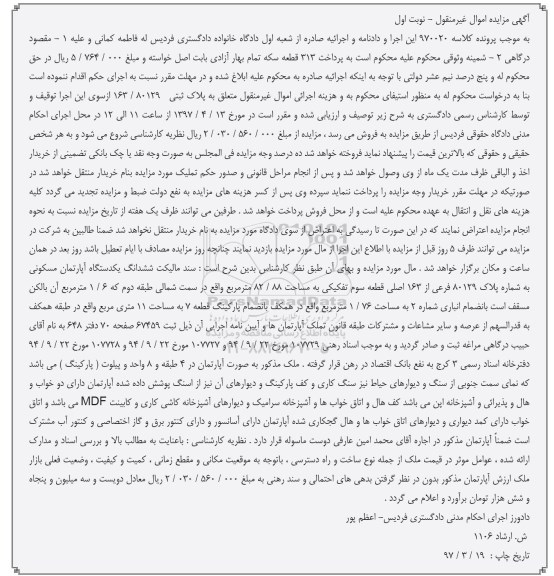 آگهی مزایده اموال غیرمنقول - نوبت اول
به موجب پرونده کلاسه ۹۷۰۰۲۰ این اجرا و دادنامه و اجرائیه صادره از شعبه اول دادگاه خانواده دادگستری فردیس له فاطمه کمانی و علیه ۱ - مقصود
درگاهی ۲ - شمینه وثوقی محکوم علیه محکوم است به پرداخت ۳۱۳ قطعه سکه تمام بهار آزادی بابت اصل خواسته و مبلغ ۰۰۰ / ۷۶۴ / ۵ ریال در حق
محکوم له و پنج درصد نیم عشر دولتی با توجه به اینکه اجرائیه صادره به محکوم علیه ابلاغ شده و در مهلت مقرر نسبت به اجرای حکم اقدام ننموده است
بنا به درخواست محکوم له به منظور استیفای محکوم به و هزینه اجرائی اموال غیرمنقول متعلق به پلاک ثبتی ۸۰۱۲۹ / ۱۶۳ ازسوی این اجرا توقیف و
توسط کارشناس رسمی دادگستری به شرح زیر توصیف و ارزیابی شده و مقرر است در مورخ ۱۳ / ۴ / ۱۳۹۷ از ساعت ۱۱ الی ۱۲ در محل اجرای احکام
مدنی دادگاه حقوقی فردیس از طریق مزایده به فروش می رسد ، مزایده از مبلغ ۰۰۰ / ۵۶۰ / ۰۳۰ / ۲ ریال نظریه کارشناسی شروع می شود و به هر شخص
حقیقی و حقوقی که بالاترین قیمت را پیشنهاد نماید فروخته خواهد شد ده درصد وجه مزایده فی المجلس به صورت وجه نقد یا چک بانکی تضمینی از خریدار
اخذ و الباقی ظرف مدت یک ماه از وی وصول خواهد شد و پس از انجام مراحل قانونی و صدور حکم تملیک مورد مزایده بنام خریدار منتقل خواهد شد در
صورتیکه در مهلت مقرر خریدار وجه مزایده را پرداخت ننماید سپرده وی پس از کسر هزینه های مزایده به نفع دولت ضبط و مزایده تجدید می گردد کلیه
هزینه های نقل و انتقال به عهده محکوم علیه است و از محل فروش پرداخت خواهد شد . طرفین می توانند ظرف یک هفته از تاریخ مزایده نسبت به نحوه
انجام مزایده اعتراض نمایند که در این صورت تا رسیدگی به اعتراض از سوی دادگاه مورد مزایده به نام خریدار منتقل نخواهد شد ضمنا طالبین به شرکت در
مزایده می توانند ظرف ۵ روز قبل از مزایده با اطلاع این اجرا از مال مورد مزایده بازدید نمایند چنانچه روز مزایده مصادف با ایام تعطیل باشد روز بعد در همان
ساعت و مکان برگزار خواهد شد . مال مورد مزایده و بهای آن طبق نظر کارشناس بدین شرح است : سند مالیکت ششدانگ یکدستگاه آپارتمان مسکونی
به شماره پلاک ۸۰۱۲۹ فرعی از ۱۶۳ اصلی قطعه سوم تفکیکی به مساحت ۸۸ / ۸۲ مترمربع واقع در سمت شمالی طبقه دوم که ۶ / ۱ مترمربع آن بالکن
مسقف است بانضمام انباری شماره ۲ به مساحت ۷۶ / ۱ مترمربع واقع در همکف بانضمام پارکینگ قطعه ۷ به مساحت ۱۱ متری مربع واقع در طبقه همکف
به قدرالسهم از عرصه و سایر مشاعات و مشترکات طبقه قانون تملک آپارتمان ها و آیین نامه اجرایی آن ذیل ثبت ۶۷۴۵۹ صفحه ۷۰ دفتر ۶۴۸ به نام آقای
حبیب درگاهی مراغه ثبت و صادر گردید و به موجب اسناد رهنی ۱۰۷۷۲۹ مورخ ۲۲ / ۹ / ۹۴ و ۱۰۷۷۲۷ مورخ ۲۲ / ۹ / ۹۴ و ۱۰۷۷۲۸ مورخ ۲۲ / ۹ / ۹۴
دفترخانه اسناد رسمی ۳ کرج به نفع بانک اقتصاد در رهن قرار گرفته . ملک مذکور به صورت آپارتمان در ۴ طبقه و ۸ واحد و پیلوت ( پارکینگ ) می باشد
که نمای سمت جنوبی از سنگ و دیوارهای حیاط نیز سنگ کاری و کف پارکینگ و دیوارهای آن نیز از اسنگ پوشش داده شده آپارتمان دارای دو خواب و
هال و پذیرائی و آشپزخانه اپن می باشد کف هال و اتاق خواب ها و آشپزخانه سرامیک و دیوارهای آشپزخانه کاشی کاری و کابینت MDF می باشد و اتاق
خواب دارای کمد دیواری و دیوارهای اتاق خواب ها و هال گچکاری شده آپارتمان دارای آسانسور و دارای کنتور برق و گاز اختصاصی و کنتور آب مشترک
است ضمناً آپارتمان مذکور در اجاره آقای محمد امین عارفی دوست ماسوله قرار دارد . نظریه کارشناسی : باعنایت به مطالب بالا و بررسی اسناد و مدارک
ارائه شده ، عوامل موثر در قیمت ملک از جمله نوع ساخت و راه دسترسی ، باتوجه به موقعیت مکانی و مقطع زمانی ، کمیت و کیفیت ، وضعیت فعلی بازار
ملک ارزش آپارتمان مذکور بدون در نظر گرفتن بدهی های احتمالی و سند رهنی به مبلغ ۰۰۰ / ۵۶۰ / ۰۳۰ / ۲ ریال معادل دویست و سه میلیون و پنجاه
و شش هزار تومان برآورد و اعلام می گردد .
دادورز اجرای احکام مدنی دادگستری فردیس- اعظم پور
ش. ارشاد ۱۱۰۶
تاریخ چاپ : ۱۹ / ۳ / ۹۷